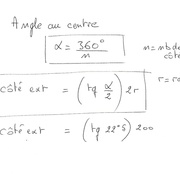 Angle au centre
α = 360° / n
n = nb de
côté
côté ext = (tg α/2) 2r
r = ra
côté ext = (tg 22°5) 200